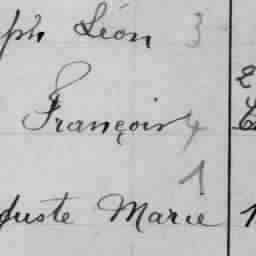 ph Léon 3
François 4
1
guste Marie 1